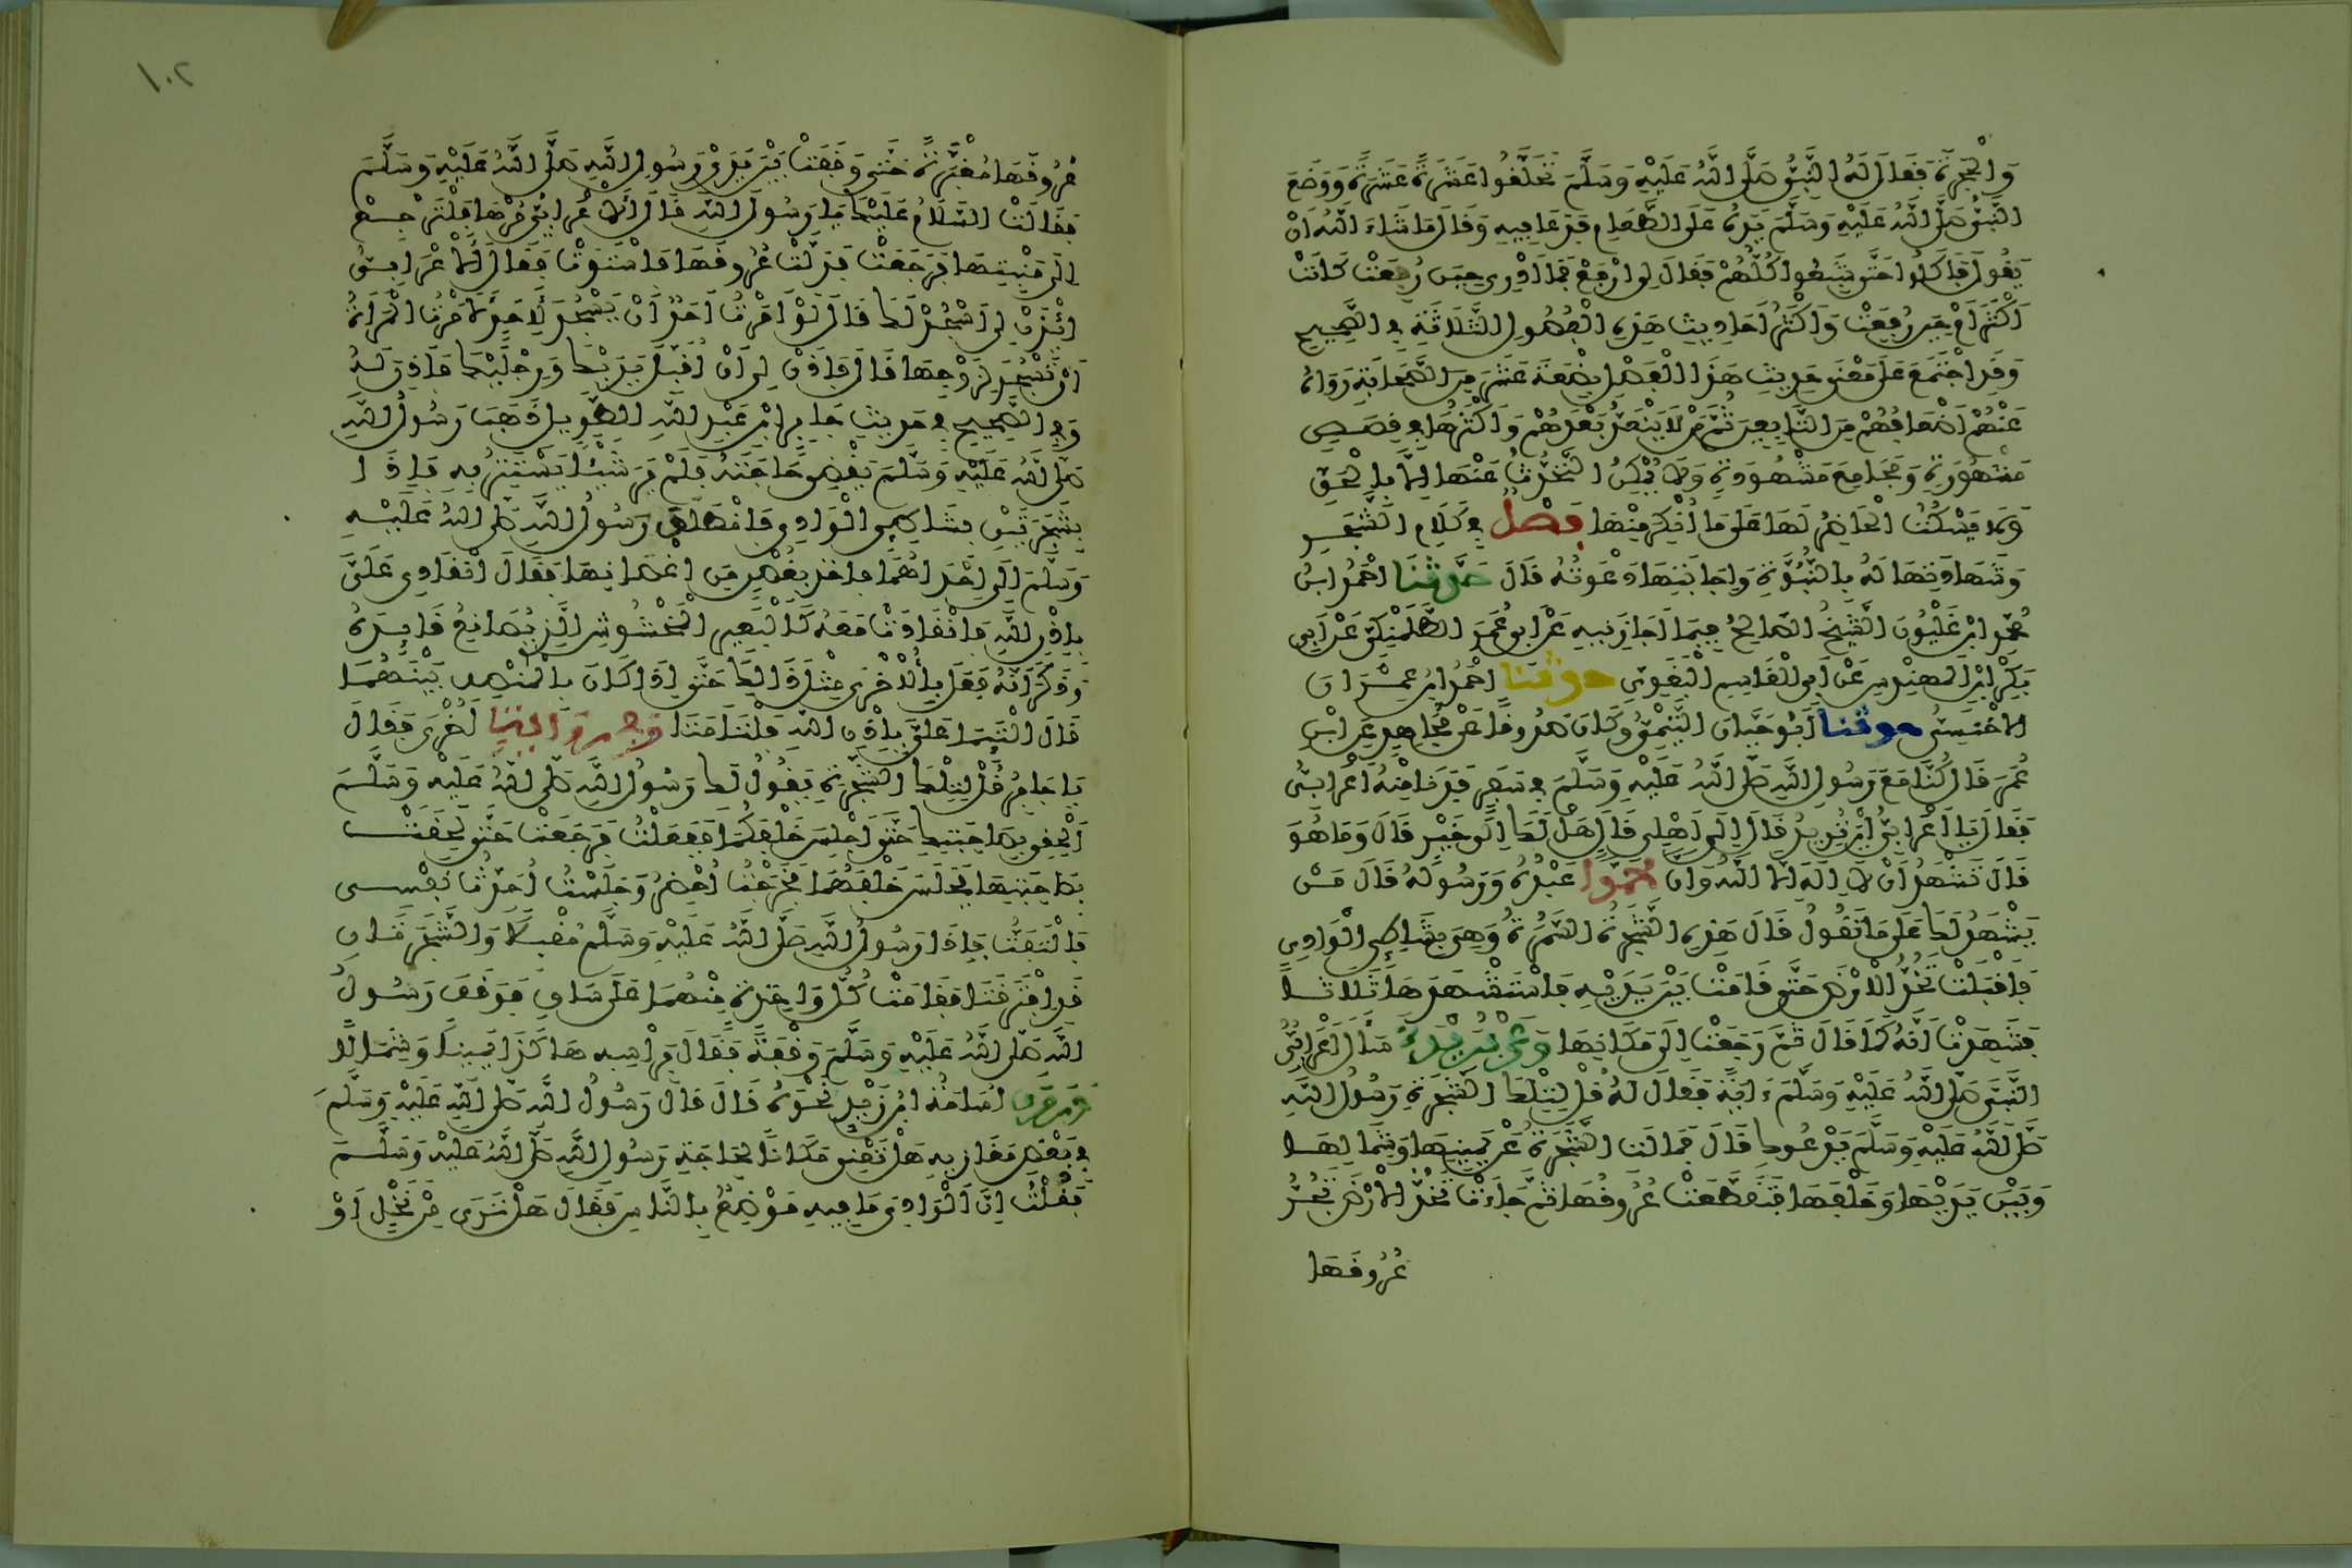 وَالْحُجْرَةُ فَقَالَ لَهُ النَّبِيُّ صَلَّى اللَّهُ عَلَيْهِ وَسَلَّمَ تَحَلَّقُوا عَشَرَةً عَشَرَةً وَوَضَعَ
النَّبِيُّ صَلَّى اللَّهُ عَلَيْهِ وَسَلَّمَ يَدَهُ عَلَى الطَّعَامِ فَدَعَا فِيهِ وَقَالَ مَا شَاءَ اللَّهُ أَنْ
يَقُولَ فَأَكَلُوا حَتَّى شَبِعُوا كُلُّهُمْ فَقَالَ لِي ارْفَعْ فَمَا أَدْرِي حِينَ رُفِعَتْ كَانَتْ
أَكْثَرَ أَمْ حِينَ رُفِعَتْ وَأَكْثَرُ أَحَادِيثِ هَذِهِ الْفُصُولِ الثَّلَاثَةِ فِي الصَّحِيحِ
وَقَدِ اجْتَمَعَ عَلَى مَعْنَى حَدِيثِ هَذَا الْفَصْلِ بِضْعَةَ عَشَرَ مِنَ الصَّحَابَةِ رَوَاهُ
عَنْهُمْ أَضْعَافُهُمْ مِنَ التَّابِعِينَ ثُمَّ مَنْ لَا يَنْعَدُّ بَعْدَهُمْ وَأَكْثَرُهَا فِي قِصَصٍ
مَشْهُورَةٍ وَمَجَامِعَ مَشْهُودَةٍ وَلَا يُمْكِنُ التَّحَدُّثُ عَنْهَا إِلَّا بِالْحَقِّ
وَلَا يَسْكُتُ الْحَاضِرُ لَهَا عَلَى مَا أُنْكِرَ مِنْهَا فَصْلٌ فِي كَلَامِ الشَّجَرِ
وَشَهَادَتِهَا لَهُ بِالنُّبُوَّةِ وَإِجَابَتِهَا دَعْوَتَهُ قَالَ حَدَّثَنَا أَحْمَدُ ابْنُ
مُحَمَّدِ ابْنِ غَلْبُونَ الشَّيْخُ الصَّالِحُ فِيمَا أَجَازَنِيهِ عَنْ أَبِي عُمَرَ الطَّلَمَنْكِيِّ عَنْ أَبِي
بَكْرِ ابْنِ الْمُهَنْدِسِ عَنْ أَبِي الْقَاسِمِ الْبَغَوِيِّ حدثنا أَحْمَدُ ابْنُ عِمْرَانَ
الْأَخْنَسِيُّ حدثنا أَبُو حَيَّانَ التَّيْمِيُّ وَكَانَ صَدُوقًا عَنْ مُجَاهِدٍ عَنِ ابْنِ
عُمَرَ قَالَ كُنَّا مَعَ رَسُولِ اللَّهِ صَلَّى اللَّهُ عَلَيْهِ وَسَلَّمَ فِي سَفَرٍ فَدَنَا مِنْهُ أَعْرَابِيٌّ
فَقَالَ يَا أَعْرَابِيُّ أَيْنَ تُرِيدُ قَالَ إِلَى أَهْلِي قَالَ هَلْ لَكَ إِلَى خَيْرٍ قَالَ وَمَا هُوَ
قَالَ تَشْهَدُ أَنْ لَا إِلَهَ إِلَّا اللَّهُ وَأَنَّ مُحَمَّدًا عَبْدُهُ وَرَسُولُهُ قَالَ مَنْ
يَشْهَدُ لَكَ عَلَى مَا تَقُولُ قَالَ هَذِهِ الشَّجَرَةُ السَّمُرَةُ وَهِيَ بِشَاطِئِ الْوَادِي
فَأَقْبَلَتْ تَخُدُّ الْأَرْضَ حَتَّى قَامَتْ بَيْنَ يَدَيْهِ فَاسْتَشْهَدَهَا ثَلَاثًا
فَشَهِدَتْ أَنَّهُ كَمَا قَالَ ثُمَّ رَجَعَتْ إِلَى مَكَانِهَا وَعَنْ بُرَيْدَةَ سَأَلَ أَعْرَابِيٌّ
النَّبِيَّ صَلَّى اللَّهُ عَلَيْهِ وَسَلَّمَ ءَايَةً فَقَالَ لَهُ قُلْ لِتِلْكَ الشَّجَرَةِ رَسُولُ اللَّهِ
صَلَّى اللَّهُ عَلَيْهِ وَسَلَّمَ يَدْعُوكِ قَالَ فَمَالَتِ الشَّجَرَةُ عَنْ يَمِينِهَا وَشِمَالِهَا
وَبَيْنَ يَدَيْهَا وَخَلْفَهَا فَتَقَطَّعَتْ عُرُوقُهَا ثُمَّ جَاءَتْ تَخُدُّ الْأَرْضَ تَجُرُّ
عُرُوقَهَا
١٠٢
عُرُوقَهَا مُغْبَرَّةً حَتَّى وَقَفَتْ بَيْنَ يَدَيْ رَسُولِ اللَّهِ صَلَّى اللَّهُ عَلَيْهِ وَسَلَّمَ
فَقَالَتْ السَّلَامُ عَلَيْكَ يَا رَسُولَ اللَّهِ قَالَ الْأَعْرَابِيُّ مُرْهَا فَلْتَرْجِعْ
إِلَى مَنْبِتِهَا فَرَجَعَتْ فَدَلَّتْ عُرُوقَهَا فَاسْتَوَتْ فَقَالَ الْأَعْرَابِيُّ
ائْذَنْ لِي أَسْجُدْ لَكَ قَالَ لَوْ أَمَرْتُ أَحَدًا أَنْ يَسْجُدَ لِأَحَدٍ لَأَمَرْتُ الْمَرْأَةَ
أَنْ تَسْجُدَ لِزَوْجِهَا قَالَ فَاذَنْ لِي أَنْ أُقَبِّلَ يَدَيْكَ وَرِجْلَيْكَ فَأَذِنَ لَهُ
وَفِي الصَّحِيحِ فِي حَدِيثِ جَابِرِ ابْنِ عَبْدِ اللَّهِ الطَّوِيلِ ذَهَبَ رَسُولُ اللَّهِ
صَلَّى اللَّهُ عَلَيْهِ وَسَلَّمَ يَقْضِي حَاجَتَهُ فَلَمْ يَرَ شَيْئًا يَسْتَتِرُ بِهِ فَإِذَا
بِشَجَرَتَيْنِ بِشَاطِئِ الْوَادِي فَانْطَلَقَ رَسُولُ اللَّهِ صَلَّى اللَّهُ عَلَيْهِ
وَسَلَّمَ إِلَى إِحْدَاهُمَا فَأَخَذَ بِغُصْنٍ مِنْ أَغْصَانِهَا فَقَالَ انْقَادِي عَلَيَّ
بِإِذْنِ اللَّهِ فَانْقَادَتْ مَعَهُ كَالْبَعِيرِ الْمَخْشُوشِ الَّذِي يُصَانِعُ قَائِدَهُ
وَذَكَرَ أَنَّهُ فَعَلَ بِالْأُخْرَى مِثْلَ ذَالِكَ حَتَّى إِذَا كَانَ بِالْمَنْصَفِ بَيْنَهُمَا
قَالَ الْتَئِمَا عَلَيَّ بِإِذْنِ اللَّهِ فَالْتَأَمَتَا وَفِي رِوَايَةٍ أُخْرَى فَقَالَ
يَا جَابِرُ قُلْ لِتِلْكَ الشَّجَرَةِ يَقُولُ لَكِ رَسُولُ اللَّهِ صَلَّى اللَّهُ عَلَيْهِ وَسَلَّمَ
الْحَقِي بِصَاحِبَتِكِ حَتَّى أَجْلِسَ خَلْفَكُمَا فَفَعَلْتُ فَرَجَعَتْ حَتَّى لَحِقَتْ
بِصَاحِبَتِهَا فَجَلَسَ خَلْفَهُمَا فَخَرَجْتُ أُحْضِرُ وَجَلَسْتُ أُحَدِّثُ نَفْسِي
فَالْتَفَتُّ فَإِذَا رَسُولُ اللَّهِ صَلَّى اللَّهُ عَلَيْهِ وَسَلَّمَ مُقْبِلًا وَالشَّجَرَتَانِ
قَدِ افْتَرَقَتَا فَقَامَتْ كُلُّ وَاحِدَةٍ مِنْهُمَا عَلَى سَاقٍ فَوَقَفَ رَسُولُ
اللَّهِ صَلَّى اللَّهُ عَلَيْهِ وَسَلَّمَ وَقْفَةً فَقَالَ بِرَأْسِهِ هَاكَذَا يَمِينًا وَشِمَالًا
وَرَوَى أُسَامَةُ ابْنُ زَيْدٍ نَحْوَهُ قَالَ قَالَ رَسُولُ اللَّهِ صَلَّى اللَّهُ عَلَيْهِ وَسَلَّمَ
فِي بَعْضِ مَغَازِيهِ هَلْ تَعْنِي مَكَانًا لِحَاجَةِ رَسُولِ اللَّهِ صَلَّى اللَّهُ عَلَيْهِ وَسَلَّمَ
فَقُلْتُ إِنَّ الْوَادِيَ مَا فِيهِ مَوْضِعٌ بِالنَّاسِ فَقَالَ هَلْ تَرَى مِنْ نَخْلٍ أَوْ